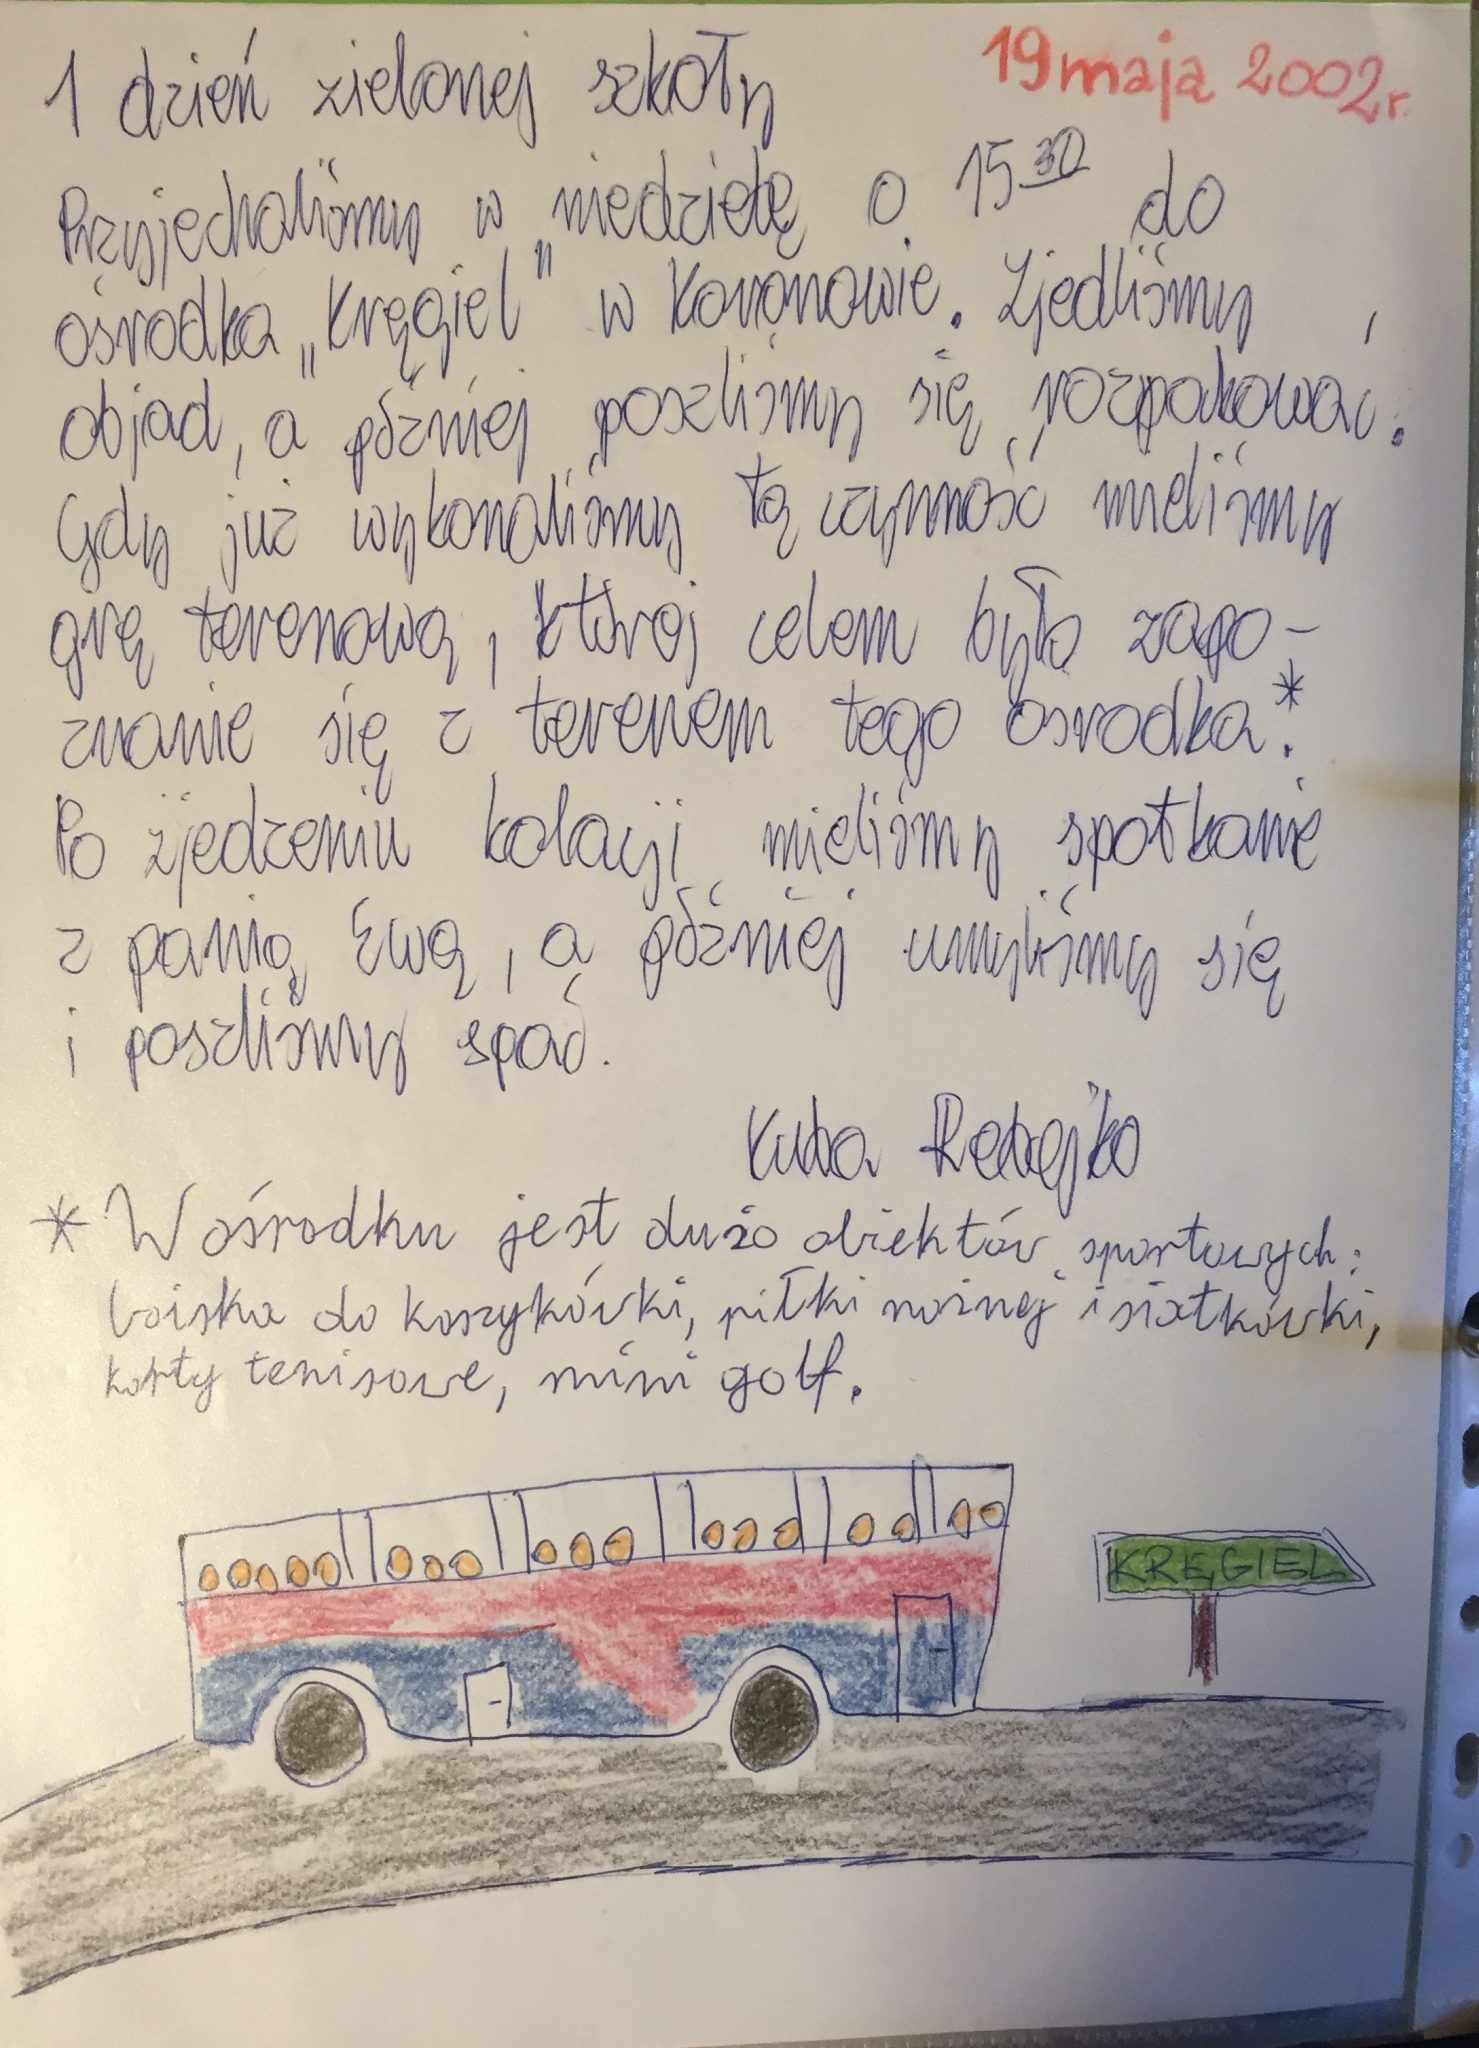 1 dzień zielonej szkoły 19 maja 2002r.
Przyjechaliśmy w niedzielę o 15³⁰ do
ośrodka „Kręgiel" w Koronowie. Zjedliśmy
objad, a później poszliśmy się rozpakować.
Gdy już wykonaliśmy tą czynność mieliśmy
grę terenową, której celem było zapo-
znanie się z terenem tego osrodka.*
Po zjedzeniu kolacji mieliśmy spotkanie
z panią Ewą, a później umyliśmy się
i poszliśmy spać.
Kuba
* W ośrodku jest dużo obiektów sportowych:
boiska do koszykówki, piłki nożnej i siatkówki,
korty tenisowe, mini golf.
KRĘGIEL